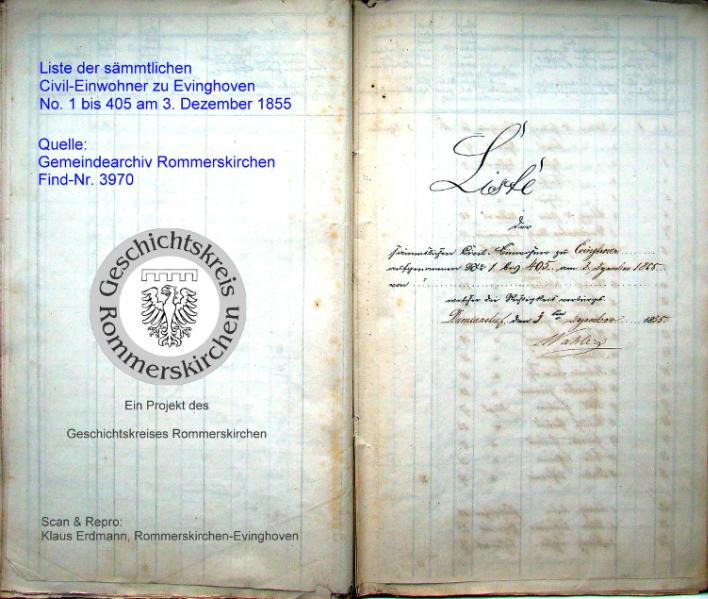 Liste der sämmtlichen
Civil-Einwohner zu Evinghoven
No. 1 bis 405 am 3. Dezember 1855
Quelle:
Gemeindearchiv Rommerskirchen
Find-Nr. 3970
Geschichtskreis
Rommerskirchen
Ein Projekt des
Geschichtskreises Rommerskirchen
Scan & Repro:
Klaus Erdmann, Rommerskirchen-Evinghoven
Liste
der
sämmtlichen Civil-Einwohner zu Evinghoven
aufgenommen No 1 bis 405 am 3. Dezember 1855
von
welcher die Richtigkeit
den 3 ten Dezember 1855